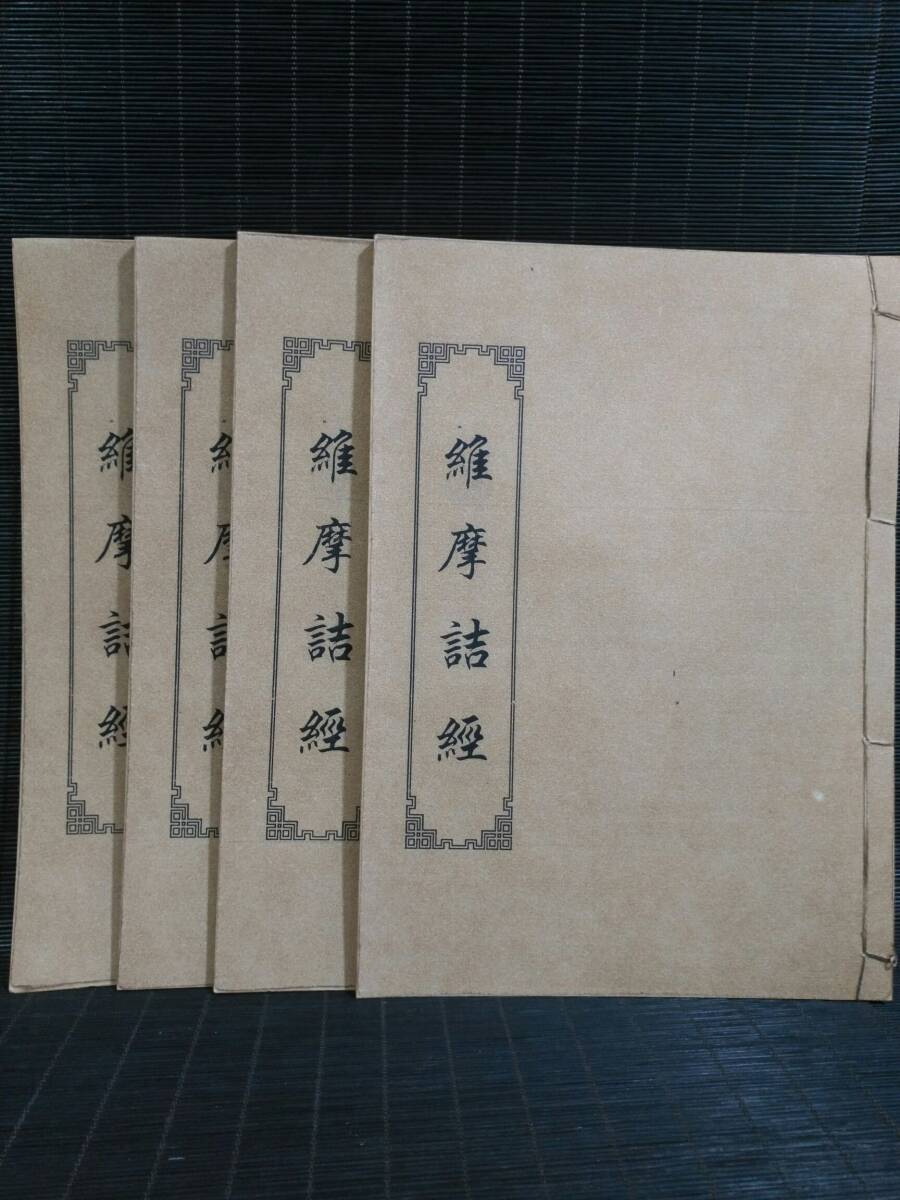 維摩詰經
維摩詰經
維摩詰經
維摩詰經